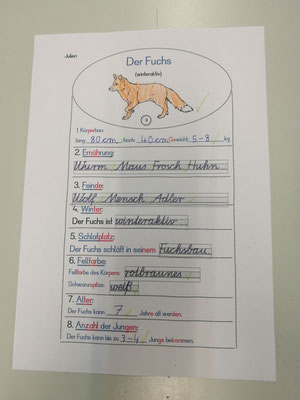 Julien
Der Fuchs
(winteraktiv)
1. Körperbau:
lang: 80 cm hoch: 40 cm Gewicht: 5-8 kg
2. Ernährung:
Wurm Maus Frosch Huhn
3. Feinde:
Wolf Mensch Adler
4. Winter:
Der Fuchs ist winteraktiv
5. Schlafplatz:
Der Fuchs schläft in seinem Fuchsbau
6. Fellfarbe:
Fellfarbe des Körpers: rotbraunes
Schwanzspitze: weiß
7. Alter:
Der Fuchs kann 7 Jahre alt werden.
8. Anzahl der Jungen:
Der Fuchs kann bis zu 3-4 Junge bekommen.